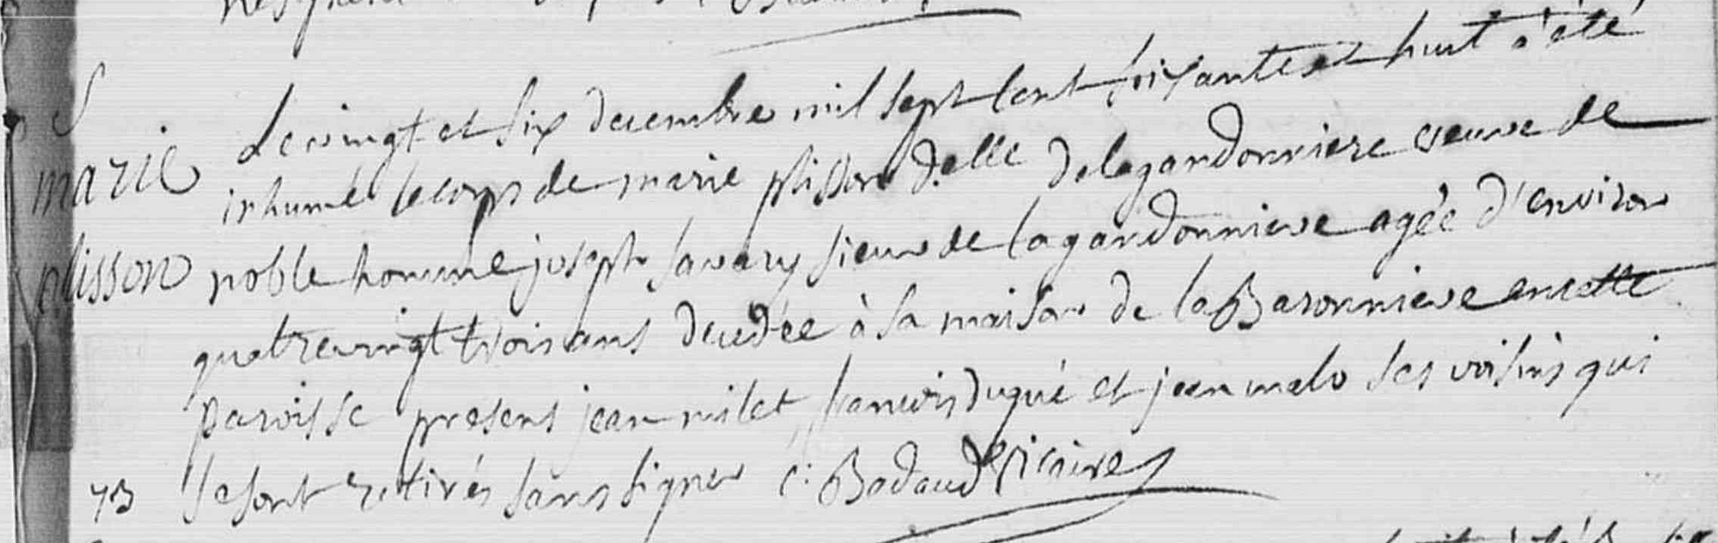 S
marie
plisson
Le vingt et six decembre mil sept cent soixante et huit a été
inhumé le corps de marie plisson d.elle de lagandonniere veuve de
noble homme joseph savary sieur de la gandonniere agée d'environ
quatrevingt trois ans decedée à sa maison de la Baronniere en cette
paroisse presens jean milet, francois dugué et jean malo ses voisins qui
se sont retirés sans signer C: Badaud Vicaire
73